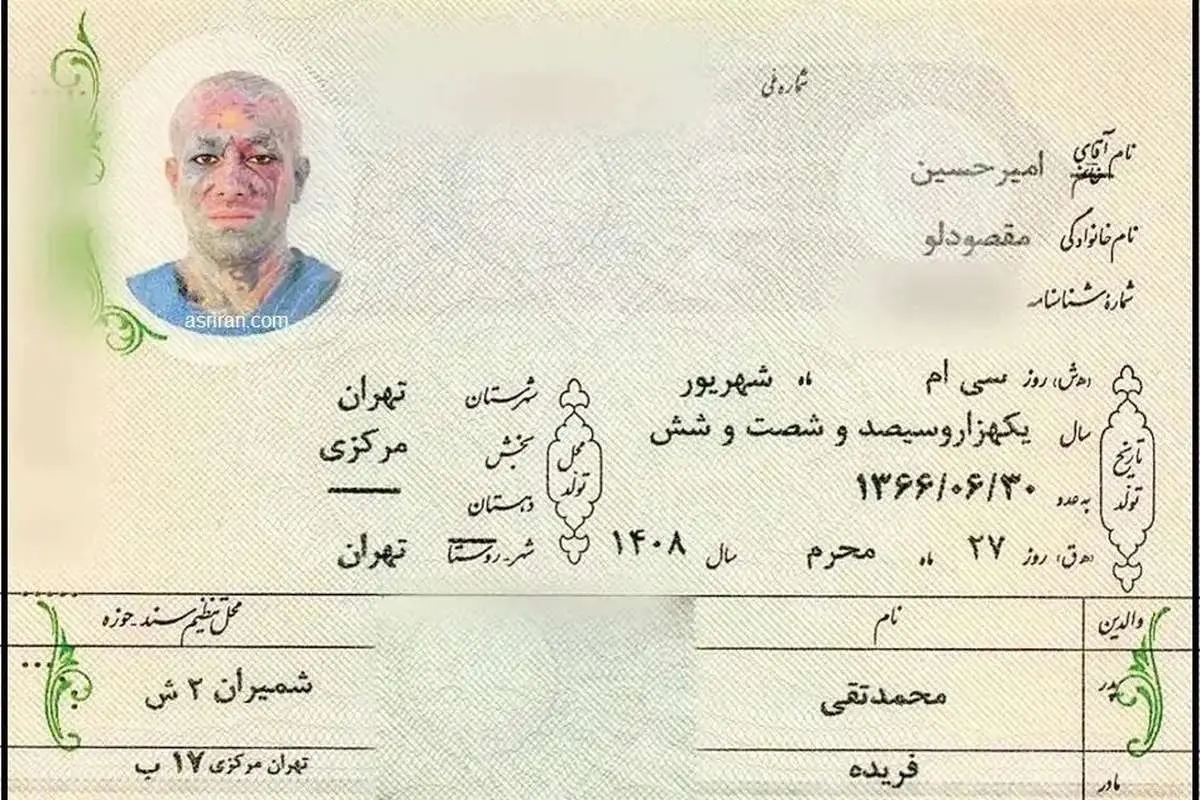 شماره ملی
نام آقای خانم امیرحسین
نام خانوادگی مقصودلو
شماره شناسنامه
تاریخ تولد
(ه‍.ش) روز سی ام ماه شهریور
سال یکهزاروسیصد و شصت و شش
به عدد ۱۳۶۶/۰۶/۳۰
(ه‍.ق) روز ۲۷ ماه محرم سال ۱۴۰۸
محل تولد
شهرستان تهران
بخش مرکزی
دهستان
شهر-روستا تهران
والدین نام محل تنظیم سند-حوزه
پدر محمدتقی شمیران ۲ ش
مادر فریده تهران مرکزی ۱۷ ب
asriran.com